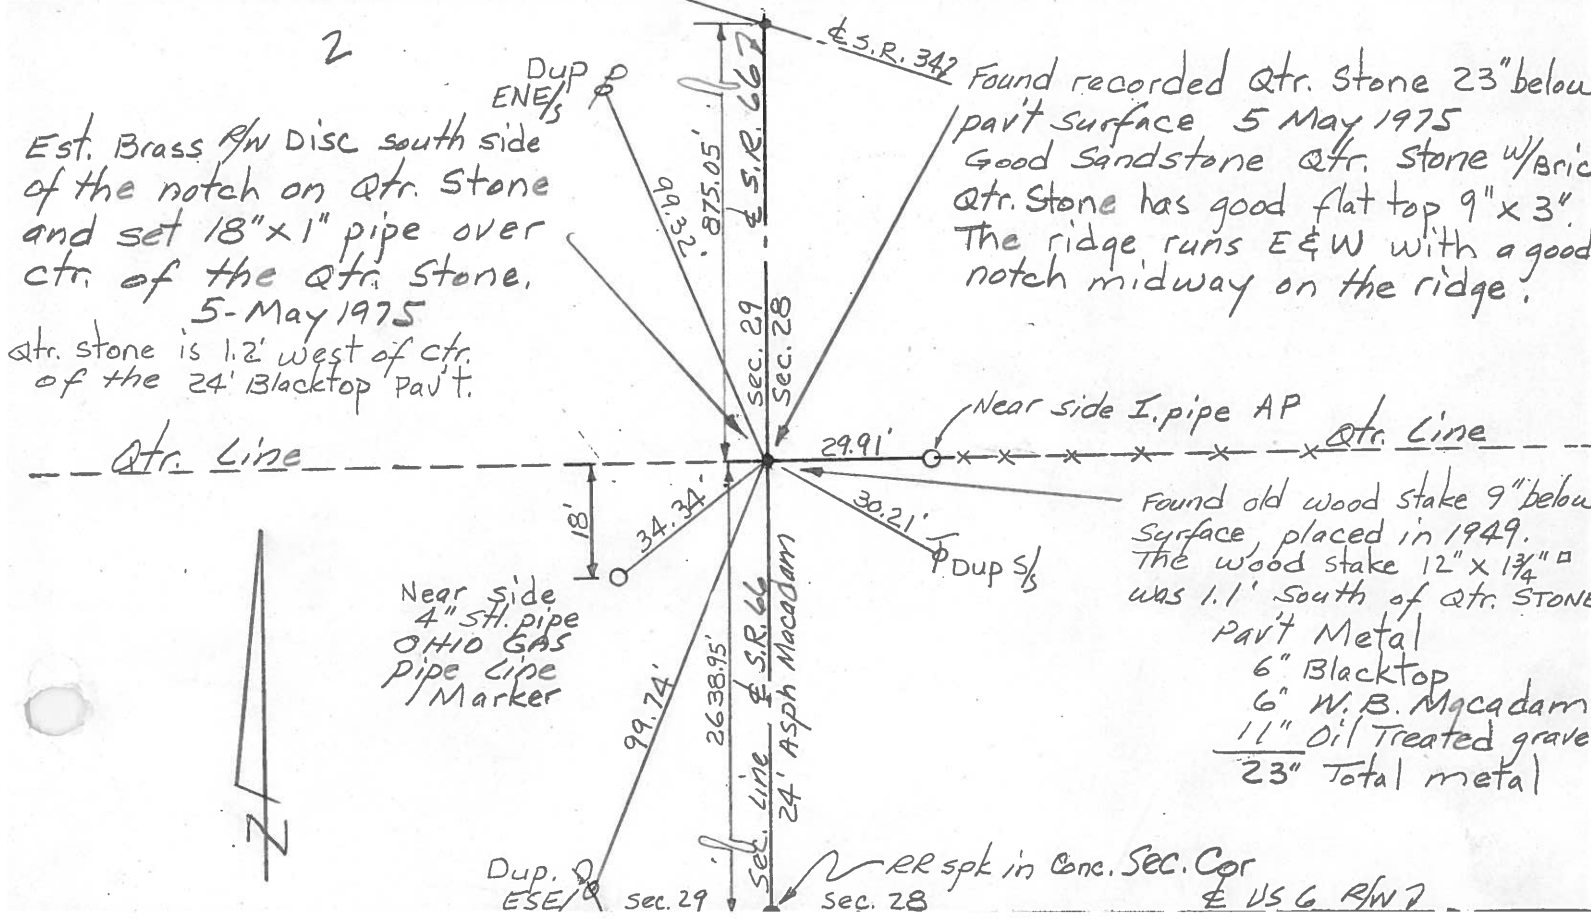 2
Est. Brass R/W Disc south side
of the notch on Qtr. Stone
and set 18"x 1" pipe over
ctr. of the Qtr. Stone.
5-May 1975
Qtr. stone is 1.2' west of ctr.
of the 24' Blacktop Pav't.
Dup
ENE/s
99.32'
875.05'
℄ S.R. 66
℄ S.R. 34
Found recorded Qtr. Stone 23" below
pav't surface 5 May 1975
Good Sandstone Qtr. Stone W/Bric
Qtr. Stone has good flat top 9"x 3"
The ridge runs E & W with a good
notch midway on the ridge.
Sec. 29
Sec. 28
Near side I. pipe AP
Qtr. Line
29.91'
Qtr. Line
18'
34.34'
30.21'
Dup S/s
Found old wood stake 9" below
Surface, placed in 1949.
The wood stake 12" x 1 3/4" □
was 1.1' South of Qtr. STONE
Pav't Metal
6" Blacktop
6" W. B. Macadam
11" Oil Treated grave
23" Total metal
Near side
4" stl. pipe
OHIO GAS
Pipe Line
Marker
99.74'
2638.95'
Sec. Line ℄ S.R. 66
24' Asph Macadam
N
Dup.
ESE/
Sec. 29
RR spk in Conc. Sec. Cor
Sec. 28
℄ US 6 R/W